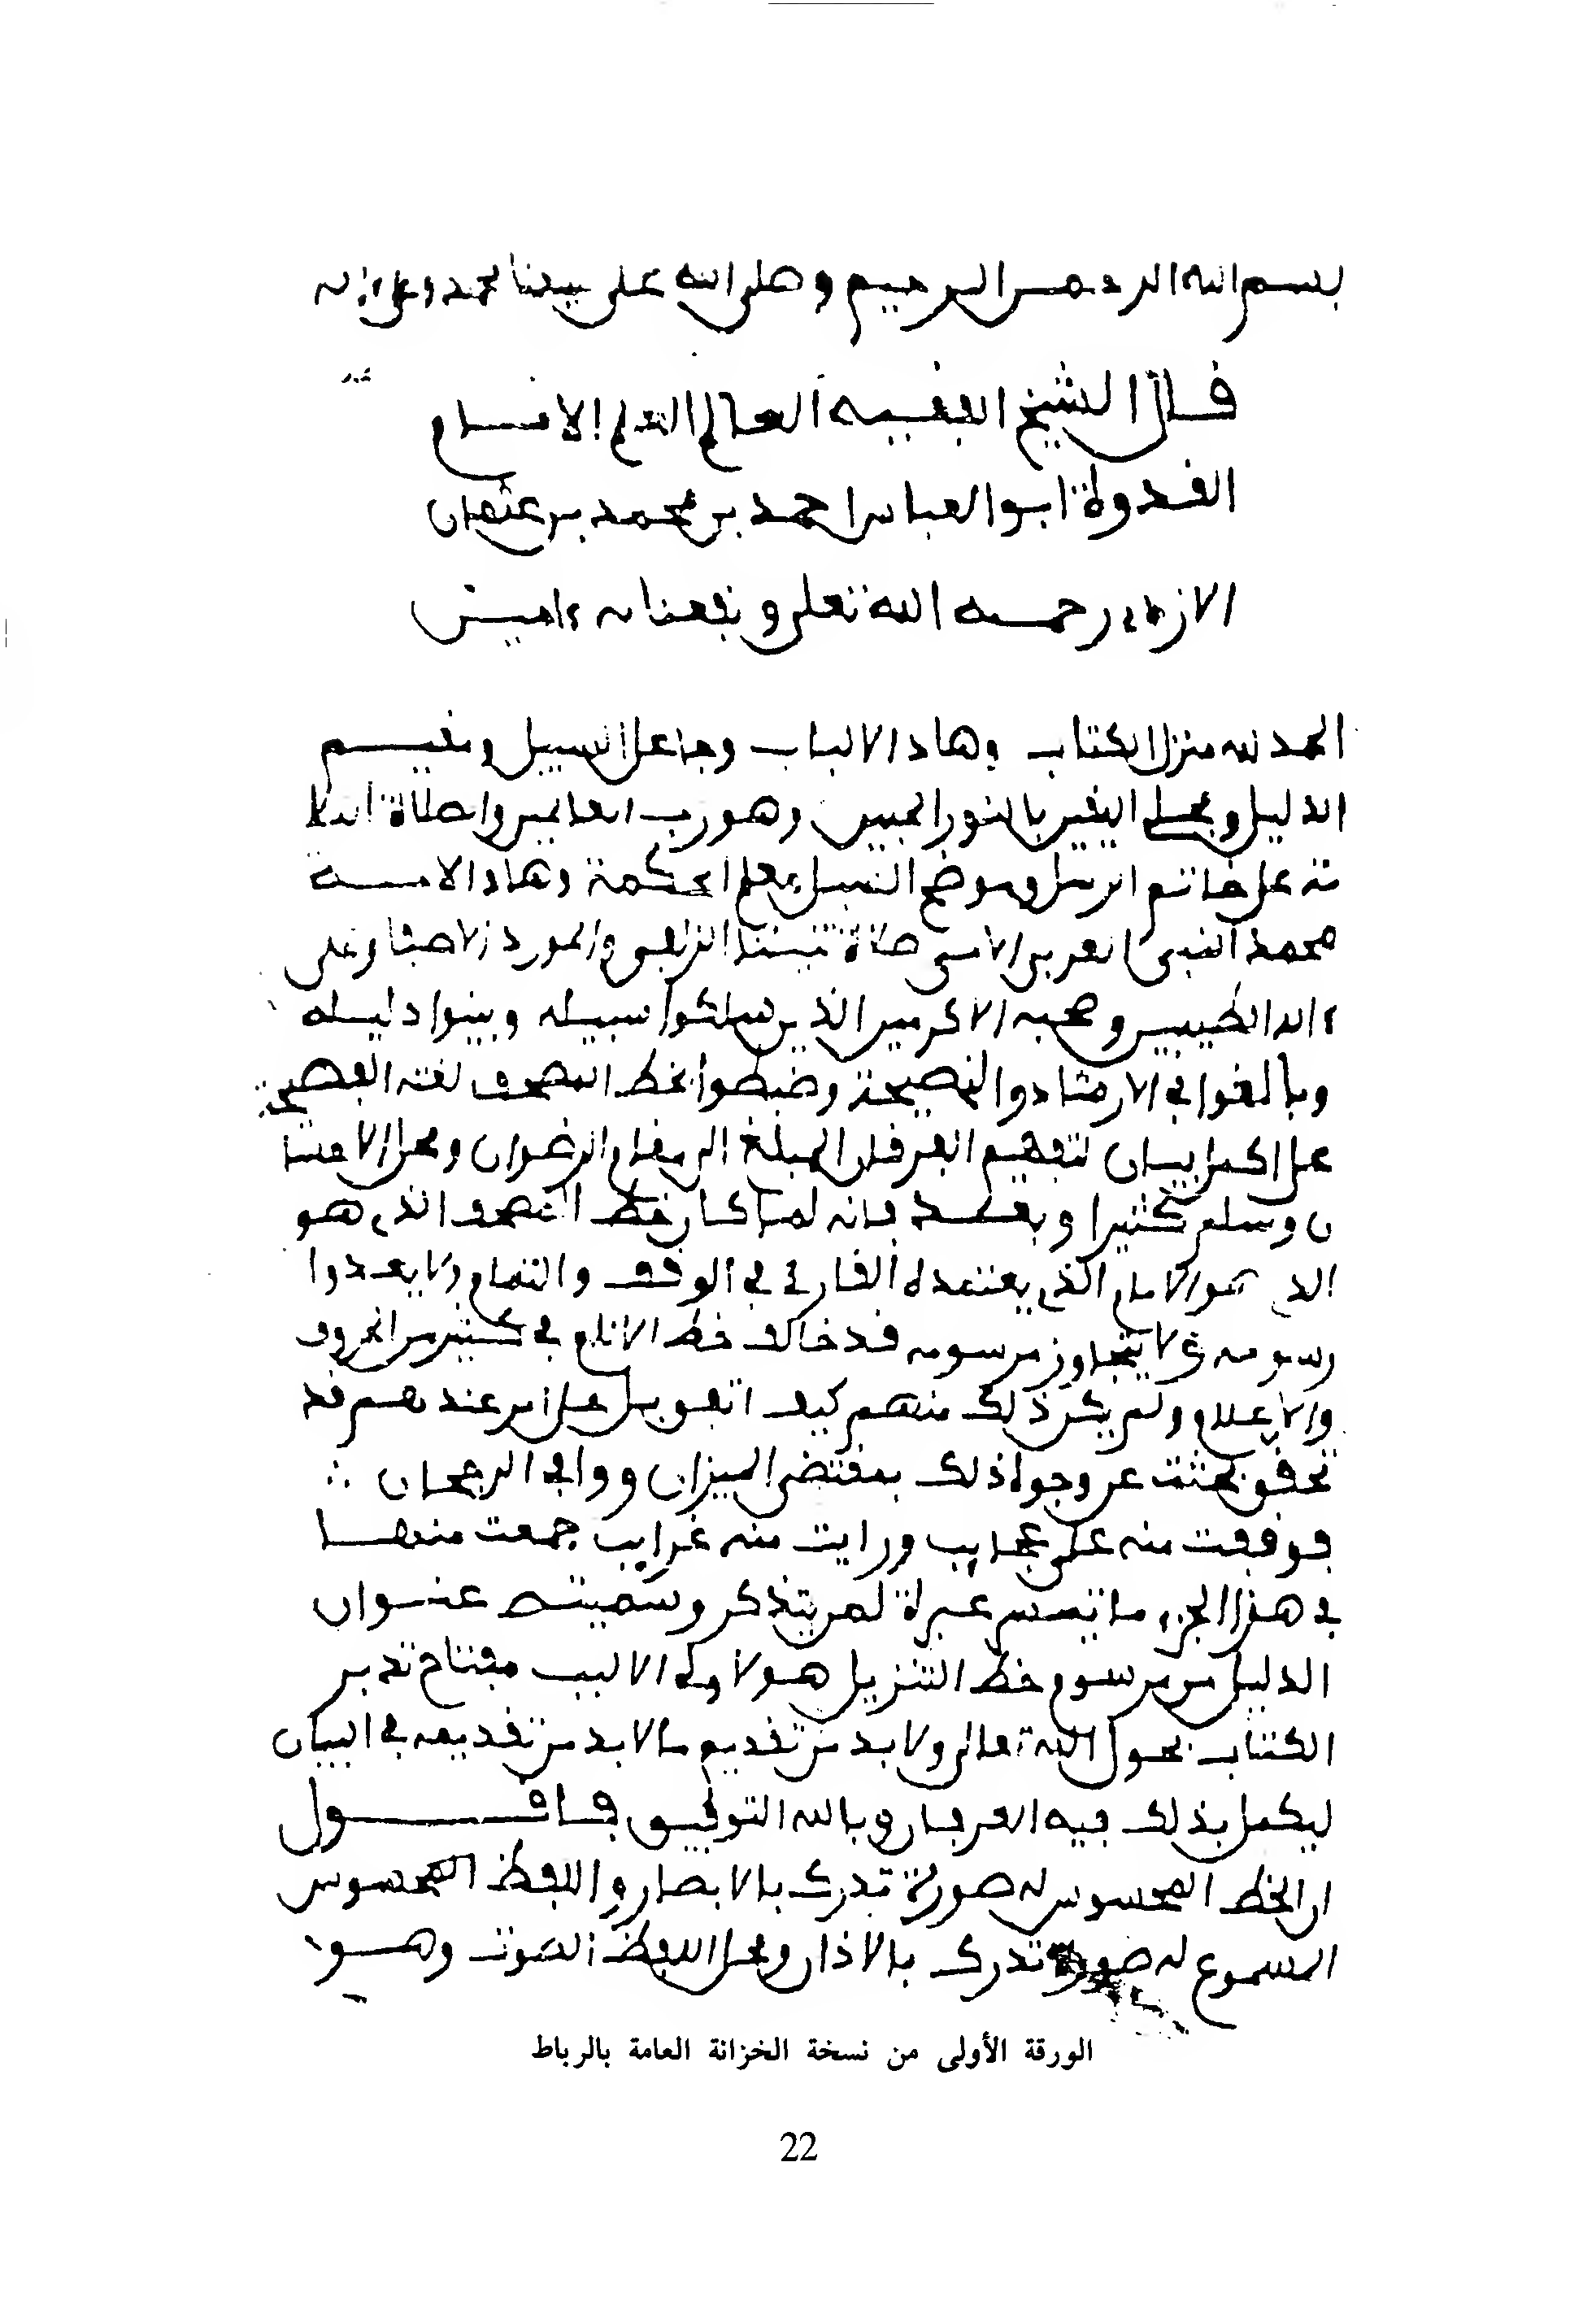 بسم الله الرحمن الرحيم وصلى الله على سيدنا محمد وعلى ءاله
قال الشيخ الفقيه العالم العلم الامام
القدوة ابو العباس احمد بن محمد بن عثمان
الازدي رحمه الله تعلى ونفعنا به ءامين
الحمد لله منزل الكتاب وهاد الالباب وجاعل السبيل ومقيم
الدليل ومجلي اليقين بالنور المبين وهو رب العالمين والصلاة الدا
ئمة على خاتم الرسل وموضح السبل معلم الحكمة وهاد الامة
محمد النبي العربي الامي صلاة الزلفى والمورد الاصفا وعلى
ءاله الطيبين وصحبه الاكرمين الذين سلكوا سبيله وبينوا دليله
وبالغوا في الارشاد والنصيحة وضبطوا بخط المصحف لغته الفصيحة
على اكمل بيان لتفهيم الفرقان المبلغ الى مقام الرضوان ومحل الامتنا
ن وسلم كثيرا وبعد فانه لما كان خط المصحف الذي هو
الامام الذي يعتمده القارئ في الوقف والتمام ولا يعدوا
رسومه ولا يتجاوز مرسومه قد خالف خط الانام في كثير من الحروف
والاعلام ولم يكن ذلك منهم كيف اتفق بل على امر عندهم قد
تحقق بحثت عن وجوه ذلك بمقتضى الميزان ووافي الرجحان
فوقفت منه على عجايب ورايت منه غرايب جمعت منها
في هذا الجزء ما تيسر عبرة لمن يتذكر وسميته عنوان
الدليل من مرسوم خط التنزيل هو لاولي الالبب مفتاح تدبر
الكتاب بحول الله تعالى ولا بد من تقديم ما لا بد من تقديمه في البيان
ليكمل بذلك فيه العرفان وبالله التوفيق فاقول
ان الخط المحسوس له صورة تدرك بالابصار واللفظ المحسوس
المسموع له صورة تدرك بالاذان ومحل اللفظ الصوت وهو
الورقة الأولى من نسخة الخزانة العامة بالرباط
22